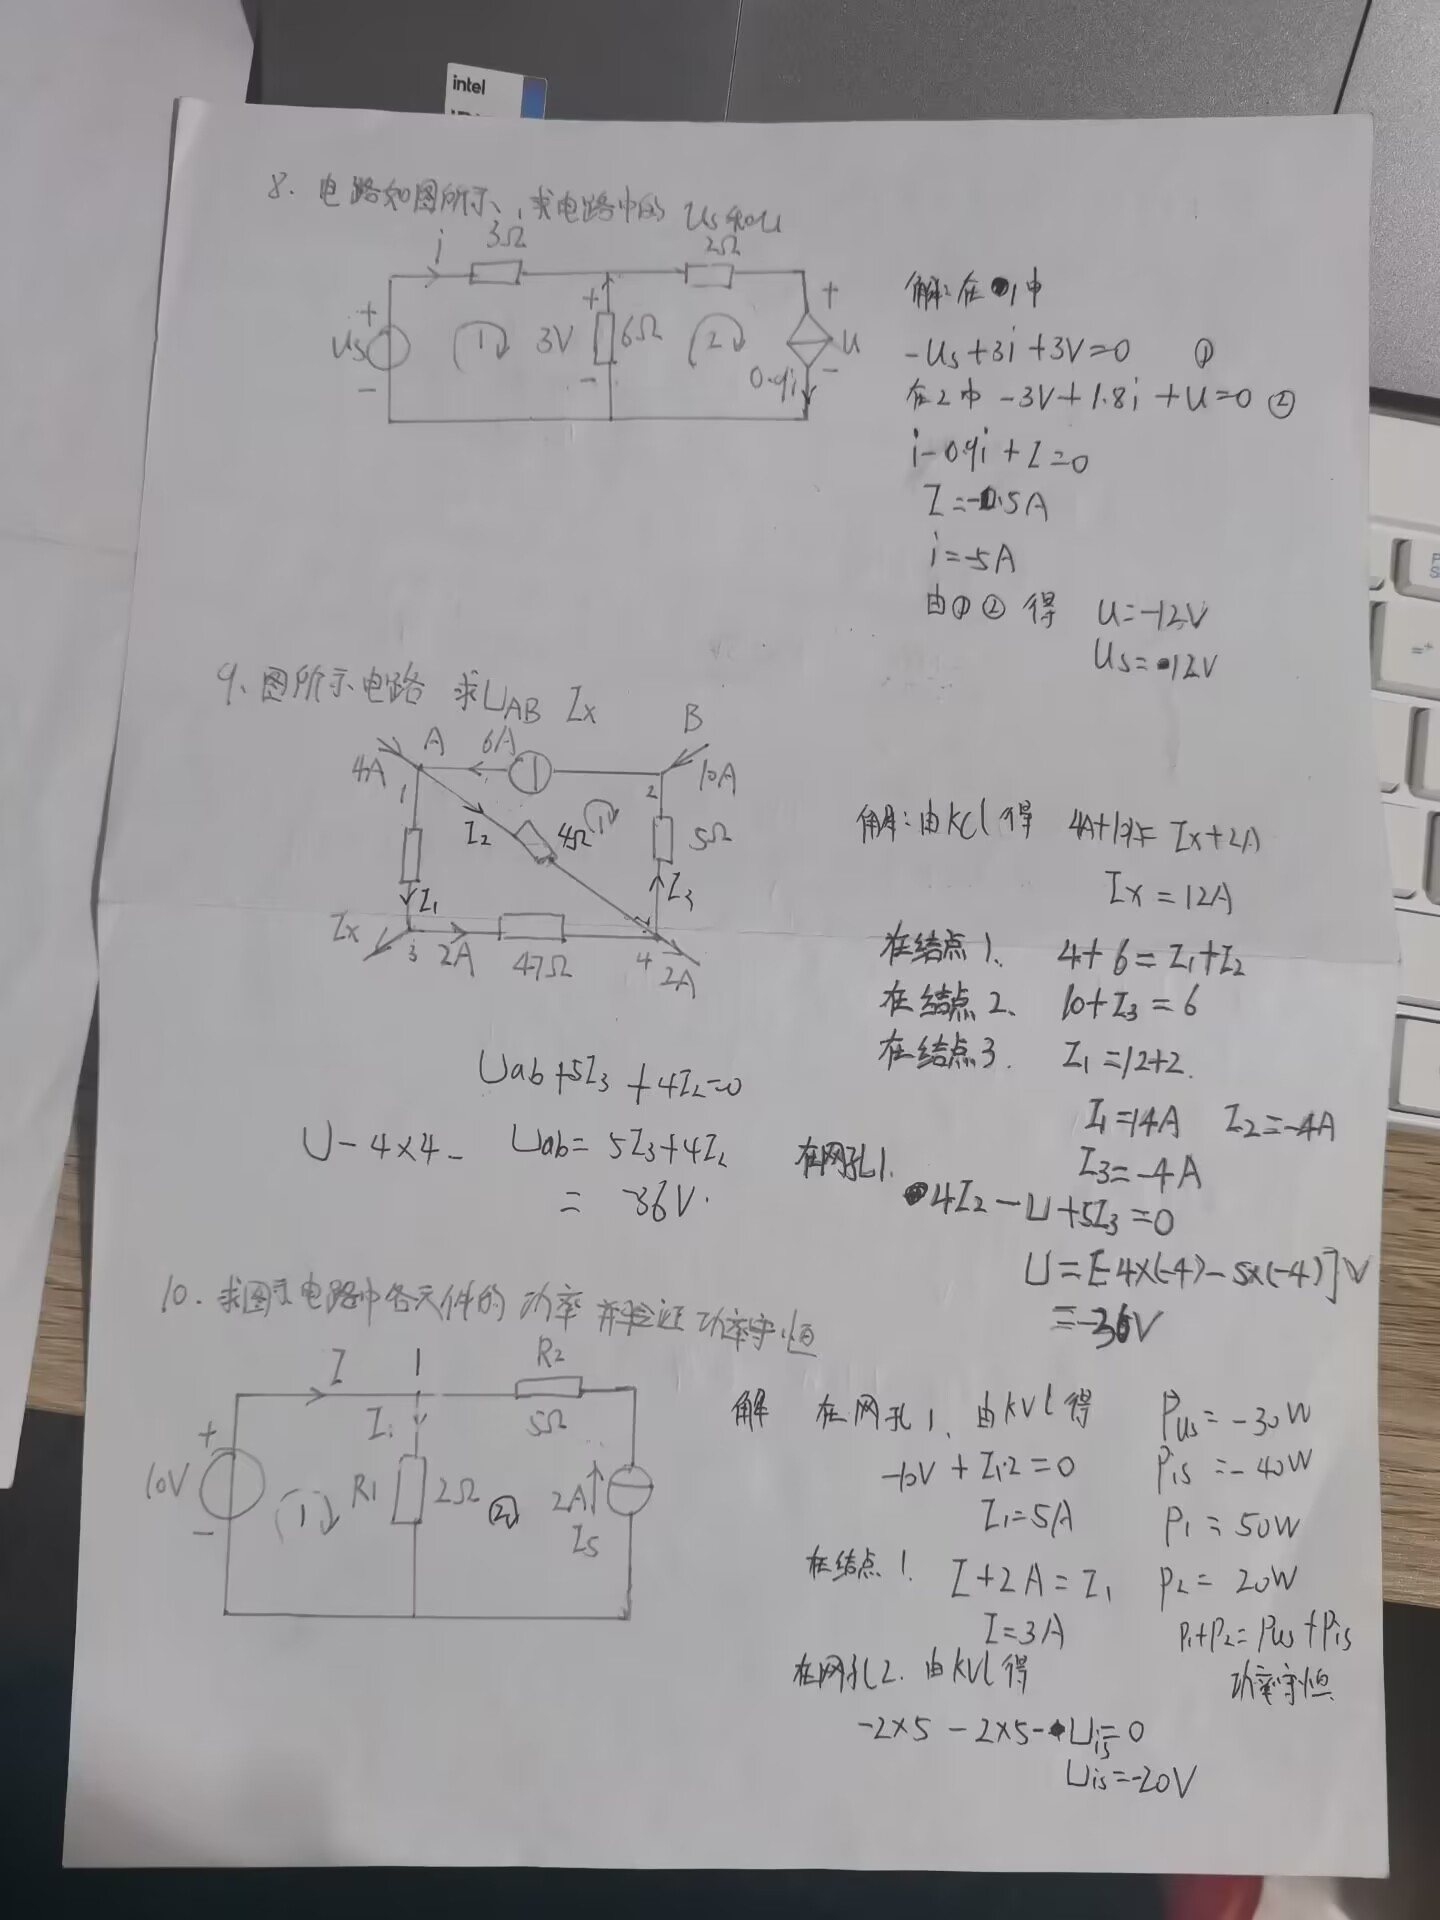 intel
8. 电路如图所示、求电路中的 Us和u
i 3Ω 2Ω
+ Us - 1 3V + - 6Ω 2 + u -
0.9i
解：在1中
-Us+3i+3V=0 ①
在2中 -3V+1.8i+U=0 ②
i-0.9i+I=0
I=-0.5A
i=-5A
由①②得 U=-12V
Us=12V
9、图所示电路 求UAB Ix
4A A 6A B 10A
1 2
I2 4Ω 1 5Ω
I1 I3
Ix 3 2A 47Ω 4 2A
解：由kcl得 4A+10A=Ix+2A
Ix=12A
在结点1、 4+6=I1+I2
在结点2、 10+I3=6
在结点3. I1=12+2.
I1=14A I2=-4A
I3=-4A
Uab+5I3+4I2=0
U-4×4- Uab=5I3+4I2
= -36V.
在网孔1. 4I2-U+5I3=0
U=[-4×(-4)-5×(-4)]V
=-36V
10. 求图示电路中各元件的功率 并验证功率守恒
I 1 R2
I1 5Ω
+ 10V - 1 R1 2Ω ② 2A
Is
解 在网孔1、由kvl得
-10V+I1·2=0
I1=5A
在结点1. I+2A=I1
I=3A
在网孔2.由kvl得
-2×5-2×5-Uis=0
Uis=-20V
Pus=-30W
Pis=-40W
P1=50W
P2=20W
P1+P2=Pus+Pis
功率守恒